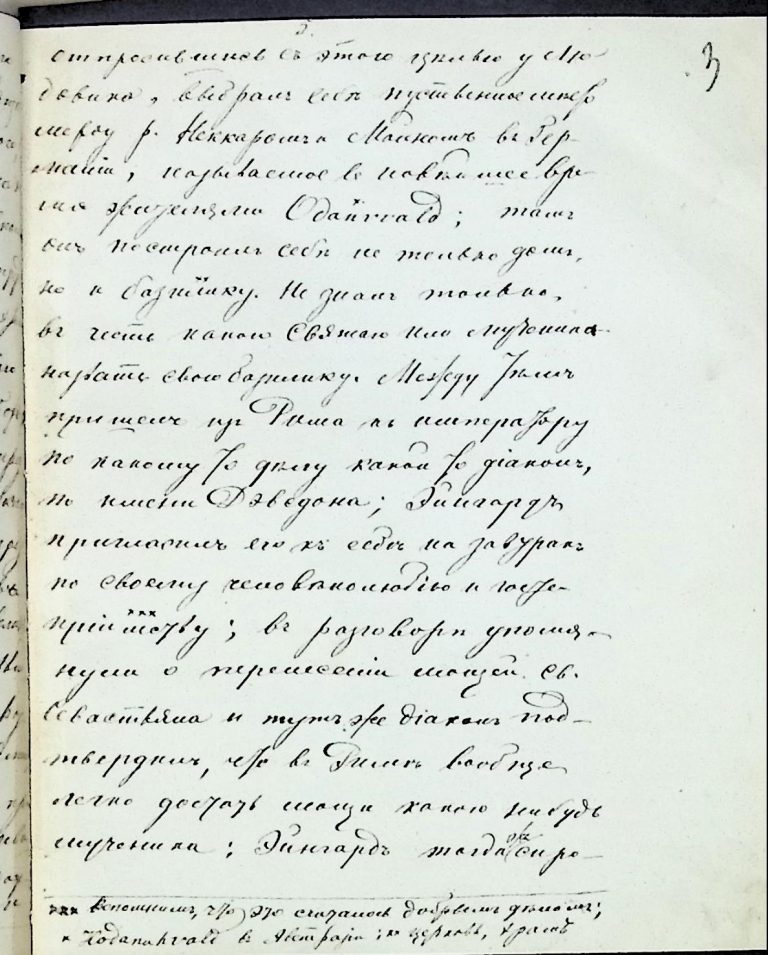 3
отпросившись съ этою цѣлью у Лю-
довика, выбралъ себѣ пустынное мѣсто
между р. Неккаромъ и Майномъ въ Гер-
маніи, называемое въ новѣйшее вре-
мя жителями Odanwald; тамъ
онъ построилъ себѣ не только домъ,
но и базилику. Не зналъ только,
въ честь какого Святаго или мученика
назвать свою базилику. Между тѣмъ
пришелъ изъ Рима къ императору
по какому то дѣлу какой то діаконъ,
по имени Дэведона; Эйнгардъ
пригласилъ его къ себѣ на завтракъ
по своему человѣколюбію и госте-
пріимству ***; въ разговорѣ упомя-
нули о перенесеніи мощей св.
Севастьяна и тутъ же діаконъ под-
твердилъ, что въ Римѣ вообще
легко достать мощи какого нибудь
мученика; Эйнгардъ тогда же спро-
*** Вспомнимъ, что это считалось добрымъ дѣломъ;
* Hodanahwald въ Австразіи; ** церковь, храмъ